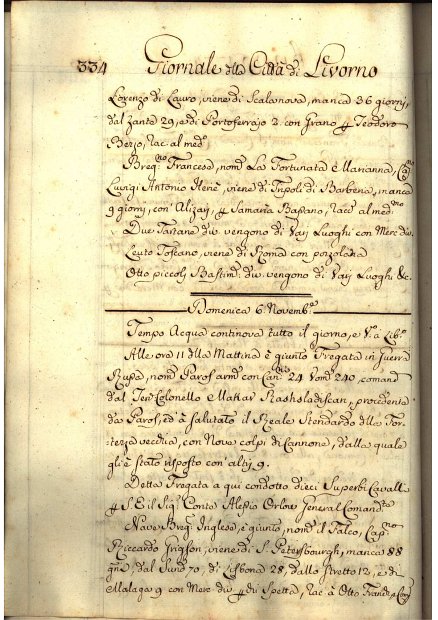 334 Giornale della Città di Livorno
Lorenzo di Lauro, viene di Scalanova, manca 36 giorny,
dal Zante 29, e di Portoferrajo 2. con Grano
Teodoro
Berio, Rac. al med.º
Breg.no Francese, nom.º La Fortunata e Marianna, Cap.no
Luigi Antonio viene di Tripoli di Barberia, manca
9 giorny, con Alizarj, Samaria Rac.º al med.mo
Due Tartane div. vengono di Varj Luoghi con Merc. div.
Leuto Toscano, viene di Roma con pozolana
Otto piccoli Bastim.ti div. vengono di Varj Luoghi &c.
Domenica 6. Novemb.e
Tempo Acqua continova tutto il giorno, e V.to a Lib.o
Alle ore 11 della Mattina è giunto Fregata in guerra
Rusa, nom.ª Paros arm.ª con Can.ni 24 Vom.ni 240, comand.
dal Ten.e Colonello e Matiar procedente
da Paros, ed à salutato il Reale Stendardo della For-
tezza vecchia, con Nove colpi di Cannone, dalla quale
gli è stato risposto con altrj 9.
Detta Fregata a qui condotto dieci Superbi Cavalli
S. E. il Sig.r Conte Alesio Orlow General Comand.te
Nave Breg.no Inglese, è giunto, nom.º il Falco, Cap.no
Riccardo viene di S. Petersbourgh, manca 88
g.ni, dal Sund 70, di Lisbona 28, dallo Stretto 12, e di
Malaga 9 con Merc. div. di Spetta, Rac. a Otto Franck e Com.